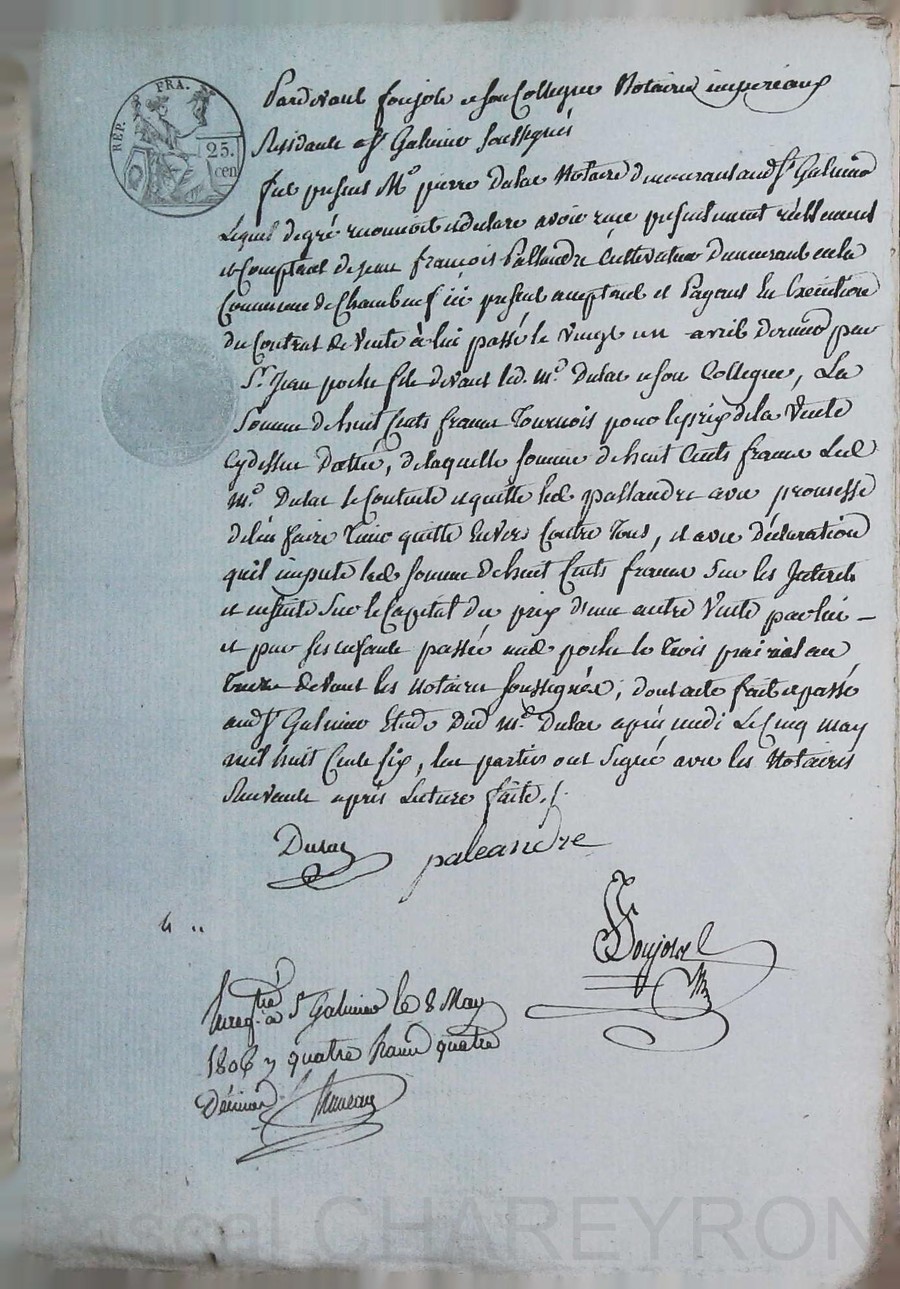 REP. FRA.
25.
cen
Pardevant foujols et son Collegue Notaires imperiaux
Residants a St Galmier soussignés
fut present Me pierre Dulac Notaire Demeurant aud. St Galmier
Lequel de gré reconnoit et declare avoir reçu presentement réellement
et Comptant de jean françois Pallandré Cultivateur Demeurant en la
Commune de Chambeuf ici present acceptant et Payant En Exécution
du Contrat de Vente à lui passé le Vingt un avril Dernier par
Sr. Jean poche fils devant led. Me. Dulac et son Collegue, La
Somme de huit Cents francs Tournois pour le prix de la Vente
Cydessus Dattée, de laquelle somme de huit Cents francs Led.
Me. Dulac se Contente et quitte led. pallandre avec promesse
de l'en faire Tenir quitte Envers Contre Tous, et avec Déclaration
qu'il impute lad. somme de huit Cents francs Sur les Interets
et ensuite Sur le Capital du prix d'une autre Vente par lui —
et par ses enfants passée aud. poche le Trois prairial an
Treize devant les Notaires soussignés, dont acte fait et passé
aud. St Galmier Etude Dud. Me. Dulac après midi Le Cinq may
mil huit Cents six, les parties ont Signé avec les Notaires
Recevants après Lecture faite./.
Dulac
paleandre
foujols
Nre
4 ..
Enregtré à St Galmier le 8 May
1806 quatre francs quatre
Décimes